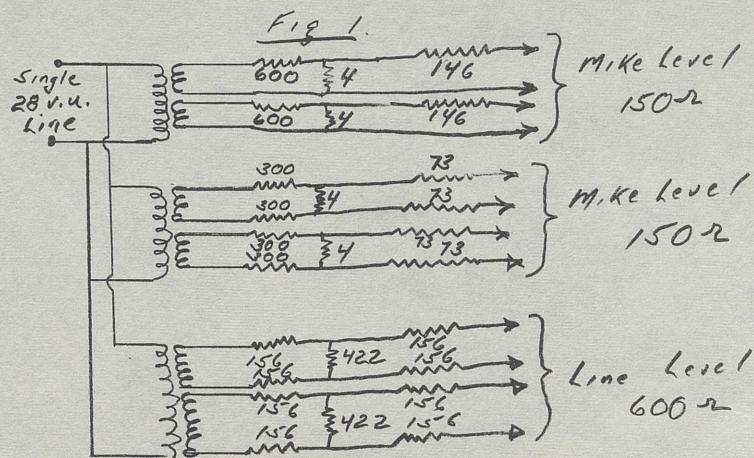 Fig 1.
Single
28 v.u.
Line
600
4
146
600
4
146
Mike Level
150Ω
300
4
73
300
73
300
4
73
300
73
Mike Level
150Ω
156
422
156
156
156
156
422
156
156
156
Line Level
600Ω